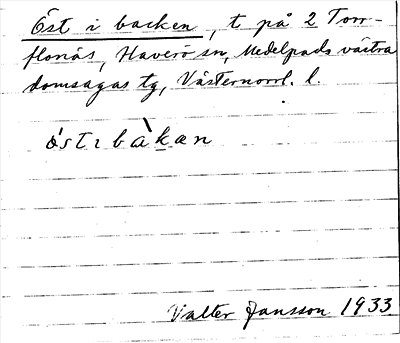 Öst i backen, t. på 2 Torr-
flonäs, Haverö sn, Medelpads västra
domsagas tg, Västernorrl. l.
östɪbàkæn
Valter Jansson 1933